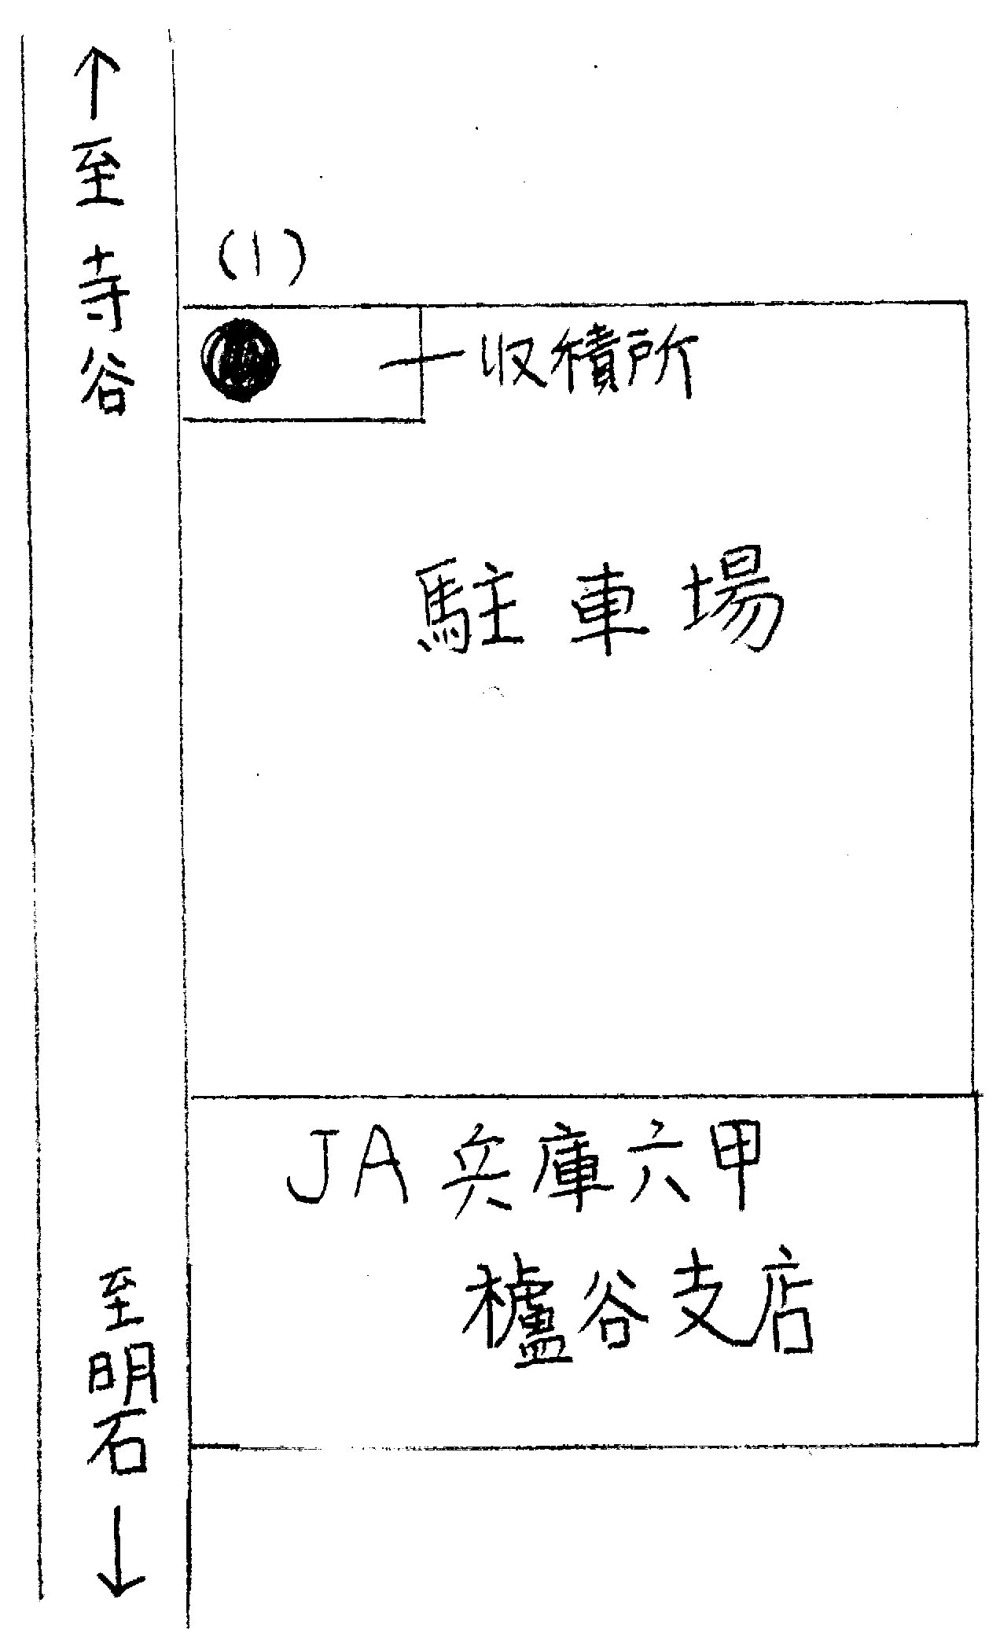 ↑至寺谷
(1)
収積所
駐車場
JA兵庫六甲
櫨谷支店
至明石↓